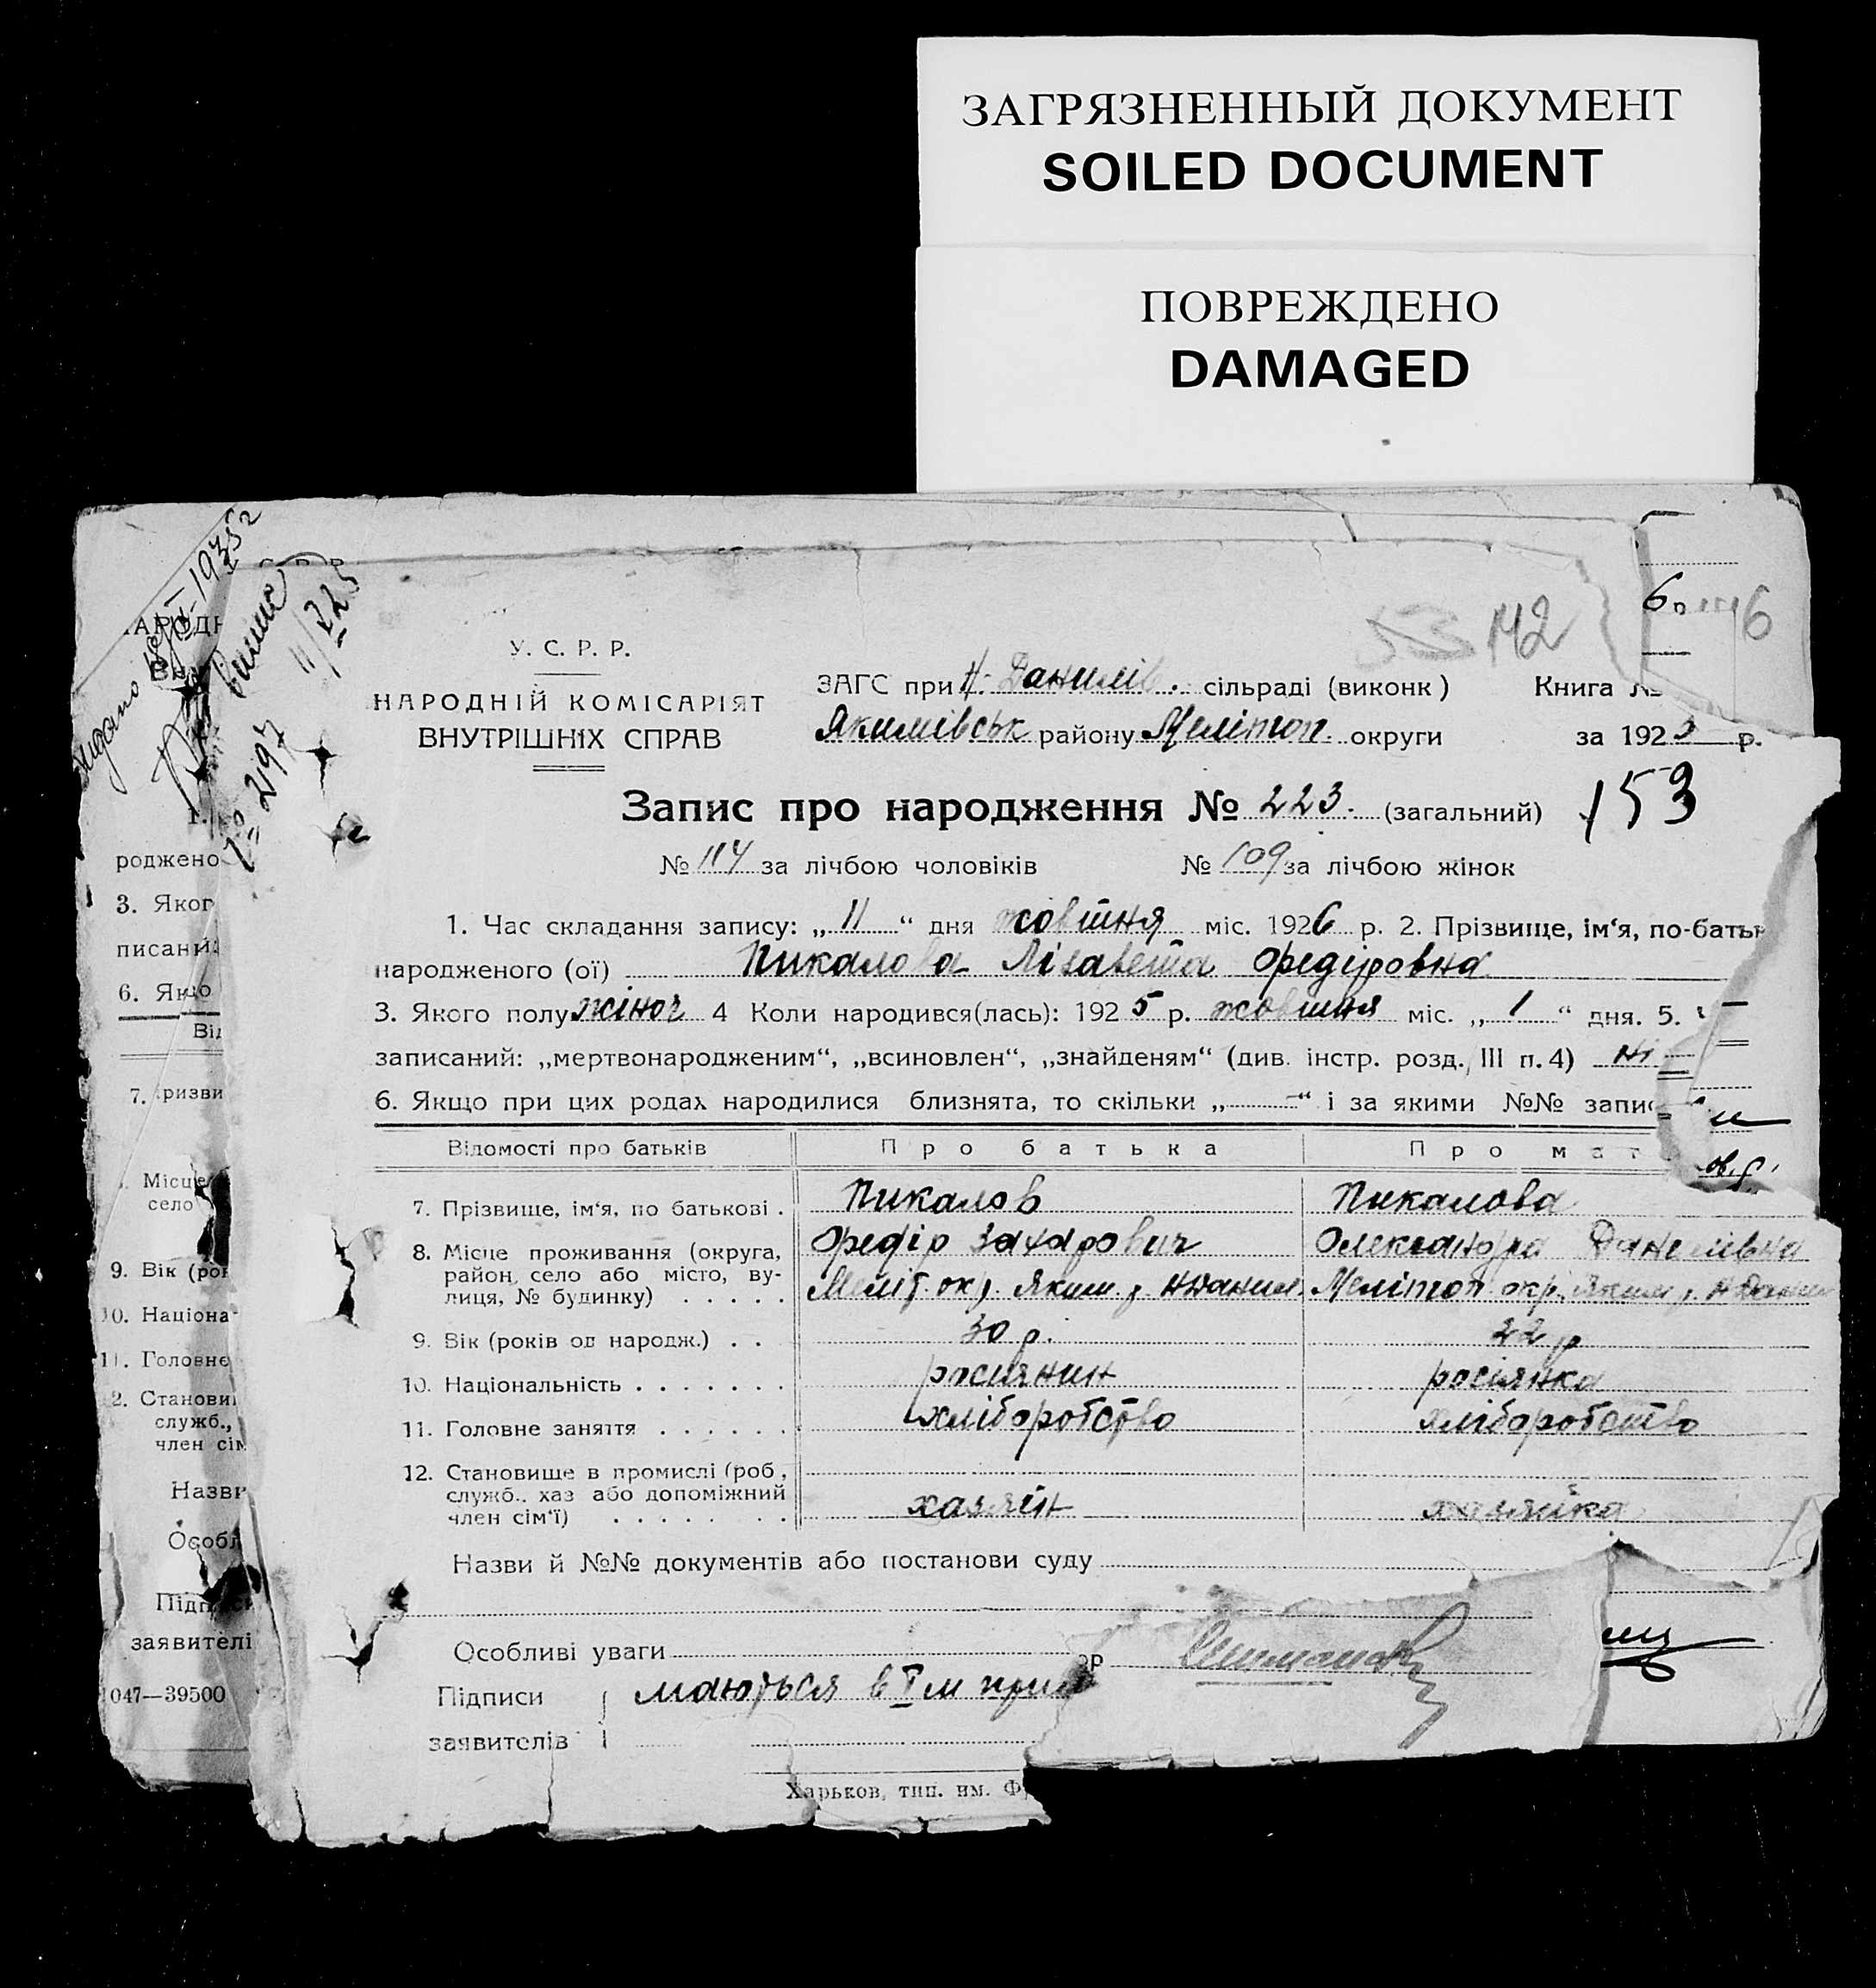 ЗАГРЯЗНЕННЫЙ ДОКУМЕНТ
SOILED DOCUMENT
ПОВРЕЖДЕНО
DAMAGED
53 142
У. С. Р. Р.
НАРОДНІЙ КОМІСАРІЯТ
ВНУТРІШНІХ СПРАВ
ЗАГС при Н. Данилів. сільраді (виконк) Книга №
Якимівськ району Мелітоп. округи за 1925 р.
Запис про народження № 223. (загальний) 153
№ 114 за лічбою чоловіків № 109 за лічбою жінок
1. Час складання запису: „ 11 “ дня жовтня міс. 1926 р. 2. Прізвище, ім‘я, по-батьк
народженого (ої) Пикалова Лізавета Федіровна
3. Якого полу жіноч 4 Коли народився(лась): 1925 р. жовтня міс. „ 1 “ дня. 5.
записаний: „мертвонародженим“, „всиновлен“, „знайденям“ (див. інстр. розд. III п. 4) ні
6. Якщо при цих родах народилися близнята, то скільки „ — “ і за якими №№ запис
Відомості про батьків Про батька Про мат
7. Прізвище, ім‘я, по батькові . Пикалов Пикалова
Федір Захарович Олександра Данилівна
8. Місце проживання (округа, район, село або місто, вулиця, № будинку) . . . . . Меліт. окр. Яким. р. Н Данил. Мелітоп. окр. Яким р. Н Данил
9. Вік (років од народж.) . . 30 р. 22 р
10. Національність . . . . . . . росіянин росіянка
11. Головне заняття . . . . . . хліборобство хліборобство
12. Становище в промислі (роб., служб., хаз або допоміжний член сім‘ї) . . . . . . . хазяїн хазяйка
Назви й №№ документів або постанови суду
Особливі уваги
Підписи маються в I м прим
заявителів
Харьков, тип. им. Ф
роджено
3. Яког
писаний:
6. Якщо
Від
7. Призви
Місце
село
9. Вік (рок
10. Націона
11. Головне
12. Станови
служб.,
член сім
Назви
Особл
Підписи
заявителі
047—39500
№ 2197
11/X 25